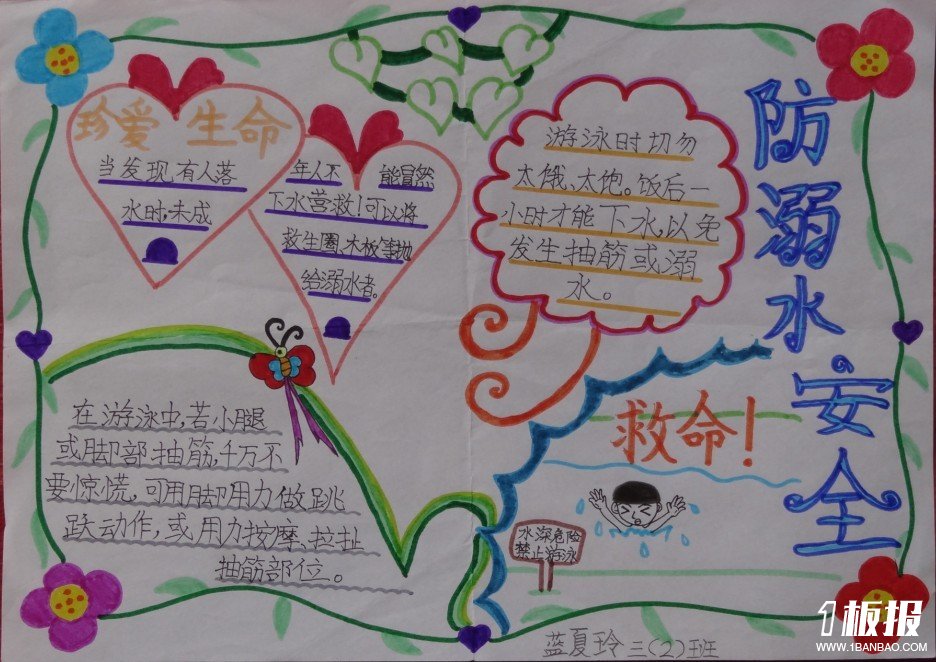 防溺水安全
珍爱生命
当发现有人落
水时,未成
年人不能冒然
下水营救!可以将
救生圈、木板等抛
给溺水者。
游泳时切勿
太饿、太饱。饭后一
小时才能下水,以免
发生抽筋或溺
水。
在游泳中,若小腿
或脚部抽筋,千万不
要惊慌,可用脚用力做跳
跃动作,或用力按摩、拉扯
抽筋部位。
救命!
水深危险
禁止游泳
蓝夏玲 三(2)班
1板报
WWW.1BANBAO.COM